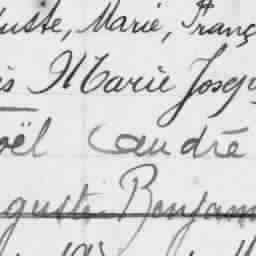 uste, Marie, Franç
is Marie Josep
oël André
guste Benjam